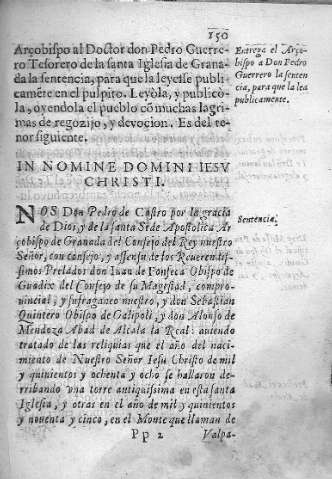 150
Arçobispo al Doctor don Pedro Guerre-
ro Tesorero de la santa Iglesia de Grana-
da la sentencia, para que la leyesse publi
camẽte en el pulpito. Leyòla, y publicò-
la, oyendola el pueblo cõ muchas lagri-
mas de regozijo, y devocion. Es del te-
nor siguiente.
Entrega el Arço-
bispo a Don Pedro
Guerrero la senten
cia, para que la lea
publicamente.
IN NOMINE DOMINI IESV
CHRISTI.
NOS Don Pedro de Castro por la gracia
de Dios, y de la santa Sede Apostolica Ar
çobispo de Granada del Consejo del Rey nuestro
Señor, con consejo, y assensu de los Reuerentis-
simos Prelados don Iuan de Fonseca Obispo de
Guadix del Consejo de su Magestad, compro-
uincial, y sufraganeo nuestro, y don Sebastian
Quintero Obispo de Galipoli, y don Alonso de
Mendoza Abad de Alcala la Real: auiendo
tratado de las reliquias que el año del naci-
miento de Nuestro Señor Iesu Christo de mil
y quinientos y ochenta y ocho se hallaron de-
rribando vna torre antiquissima en esta santa
Iglesia, y otras en el año de mil y quinientos
y nouenta y cinco, en el Monte que llaman de
Sentencia.
Pp 2 Valpa-